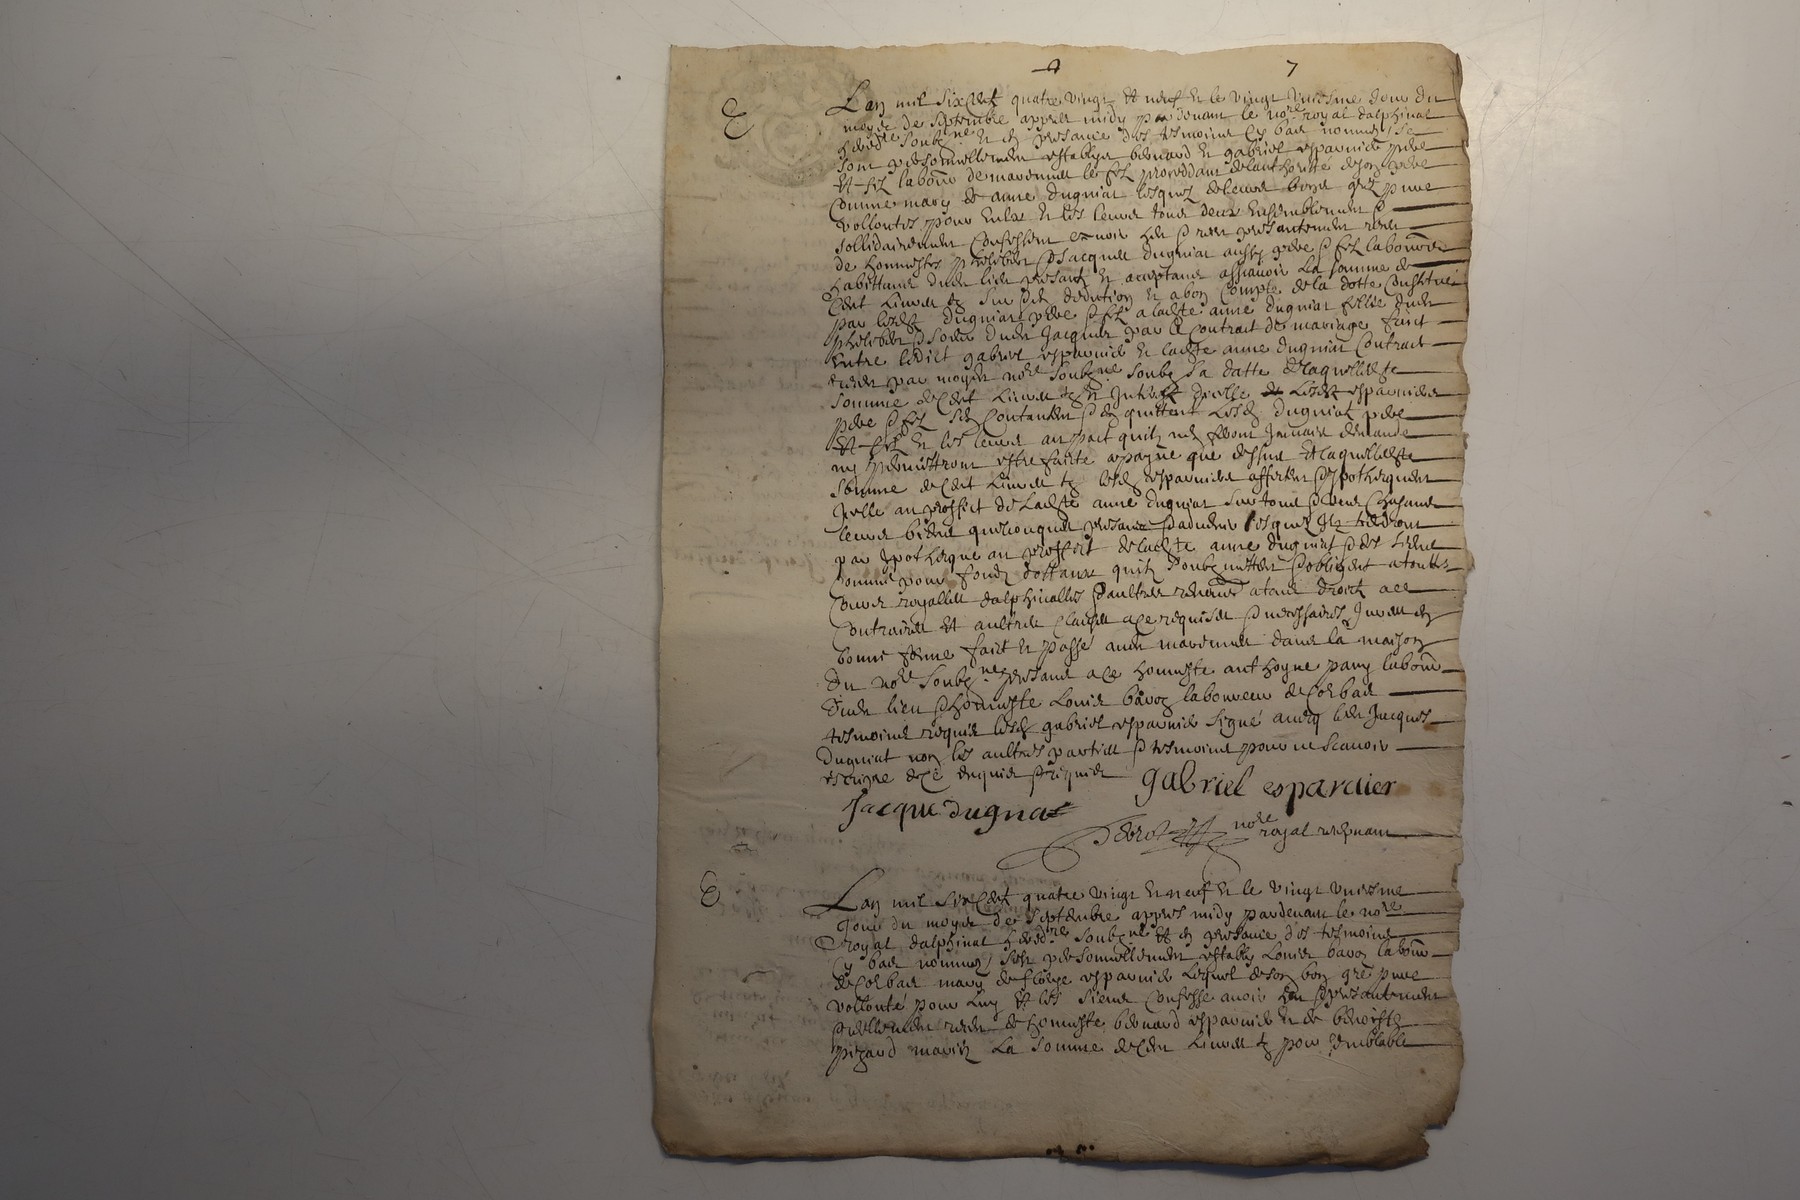 7
Lan mil six Cent quatre vingt et neuf et le vingt uniesme Jour du
moys de septembre appres midy par devant le no.re royal dalphinal
hered.re soubz.ne et en presance des tesmoins cy bas nommes se
sont personnellement establys bernard et gabriel esparvier pere
et filz labour de marennes le filz proceddant de lauthorité de son pere
Comme mary de anne dugniat lesquels de leurs bons gres pure
vollontes pour eulx et les leurs tous deux Ensemblement &
sollidairement Confessent avoir heu & receu presantement reel
de honnestes philibert & Jacques dugniat aussy pere & filz laboureurs
habittans dudit lieu presants et acceptans assavoir La somme de
Cent Livres tz sur & en dedution et a bon Compte de la dotte Constituee
par lesdz dugniat pere & filz a ladte anne dugniat fillie dudit
philibert & soeur dudit Jacques par le Contract de mariage faict
Entre ledict gabriel esparvier et ladte anne dugniat Contract
receu par moydit no.re soubz.ne soubz sa datte De laquelle dte
somme de Cent Livres tz et Interest dicelle lesdz esparvier
pere & filz sen Contantent & en quittent lesdz dugniat pere
et filz et les leurs au pact quilz nen feront Jamais demande
ny permettront estre faicte a payne que dessus Et laquelle dte
somme de Cent Livres tz lesdz esparvier affectent & ypothequent
Icelle au proffict de Ladte anne dugniat sur tous & Ungs Chascuns
leurs biens quelconques presans & advenir lesquelz Ilz tiendront
par ypotheque au proffict de ladte anne dugniat & des siens
comme pour fondz dottaux quilz soubzmettent & obligent a toutes
Cours royalles dalphinalles & aultres renoncé a tous droictz a ce
Contraires et aultres Clauses a ce requises & necessaires Jures en
bonne forme faict et passé audit marennes dans la maison
du no.re soubz.ne presans a ce honneste anthoyne pany labour
dudit lieu & honneste Louis bavoz laboureur de Corbas
tesmoins requis lesdz gabriel esparvier signé avecq ledit Jacques
dugniat non les aultres parties & tesmoins pour ne scavoir
escripre de ce enquis & requis
gabriel esparuier
Jacque dugnat
no.re
royal recepvant
Lan mil six Cent quatre vingt et neuf et le vingt uniesme
Jour du moys de septembre appres midy par devant le no.re
royal dalphinal hered.re soubz.ne et en presance des tesmoins
cy bas nommes sest personnellement estably Louis bavoz labour
de Corbas mary de esparvier Lequel de son bon gré pure
vollonté pour luy et les siens Confesse avoir heu & presantement
reellement receu de honneste bernard esparvier et de benoiste
pizard mariés La somme de Cent Livres tz pour semblable